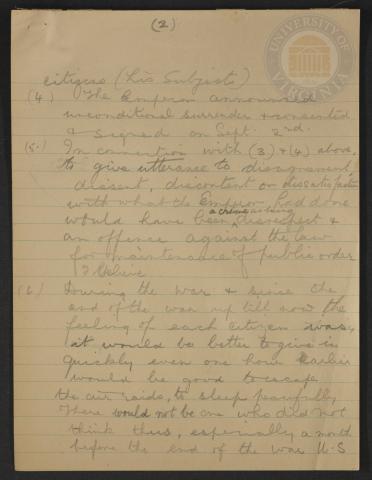 (2)
UNIVERSITY OF VIRGINIA
citizens (his Subjects)
(4) The Emperor announced
unconditional surrender & consented
& signed on Sept. 2nd.
(5.) In connection with (3) & (4) above,
to give utterance to disagreement,
dissent, discontent or dissatisfaction
with what the Emperor had done
a crime as being
would have been disrespect &
an offence against the law
for maintenance of public order
I believe
(6) During the war & since the
end of the war up till now the
feeling of each citizen was,
it would be better to give in
quickly even one hour earlier
would be good to escape
the air raids, to sleep peacefully.
There would not be one who did not
think thus, especially a month
before the end of the war U.S